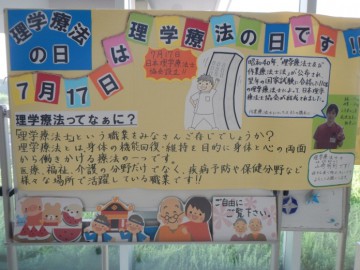 理学療法
の日
7月17日
は理学療法の日です!!
7月17日
日本理学療法士
協会設立!!
昭和40年、「理学療法士及び
作業療法士法」が公布され、
翌年の国家試験に合格した110名
の理学療法士によって、日本理学
療法士協会が結成されました。
理学療法ってなぁに?
「理学療法士」という職業をみなさんご存じでしょうか?
理学療法とは、身体の機能回復・維持を目的に身体と心の両面
から働きかける療法の一つです。
医療、福祉、介護の分野だけでなく、疾病予防や保健分野など
様々な場所で活躍している職業です!!
ご自由に
ご覧下さい。